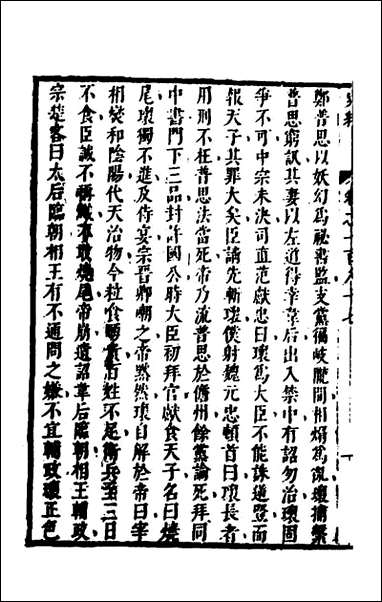 鄭普思以妖幻爲祕書監支黨徧岐隴間相煽爲亂瓌捕繫
普思窮訊其妻以左道得幸韋后出入禁中有詔勿治瓌固
爭不可中宗未決司直范獻忠曰瓌爲大臣不能誅逆豎而
報天子其罪大矣臣請先斬瓌僕射魏元忠頓首曰瓌長者
用刑不枉普思法當死帝乃流普思於儋州餘黨論死拜同
中書門下三品封許國公時大臣初拜官獻食天子名曰燒
尾瓌獨不進及侍宴宗晉卿嘲之帝黙然瓌自解於帝曰宰
相燮和陰陽代天治物今粒食踴貴百姓不足衛兵至三日
不食臣誠不稱職不敢燒尾帝崩遺詔韋后臨朝相王輔政
宗楚客曰太后臨朝相王有不通問之嫌不宜輔政瓌正色